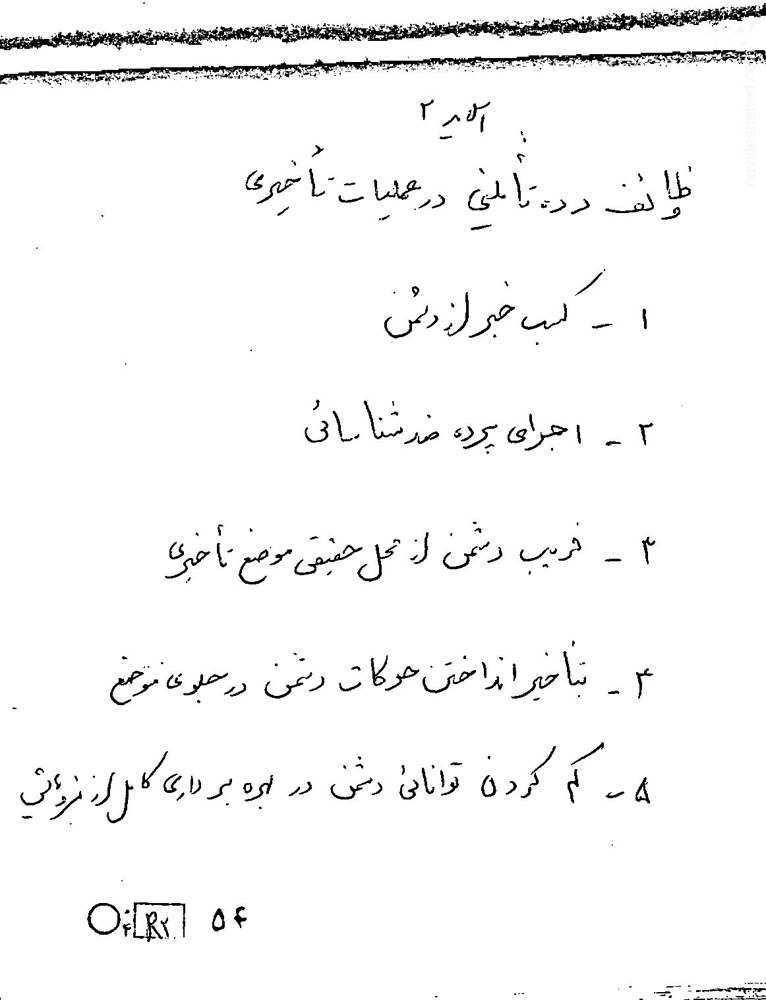 اسلاید ۲
وظائف رده تأمینی در عملیات تأخیری
۱ - کسب خبر از دشمن
۲ - اجرای پرده ضد شناسائی
۳ - فریب دشمن از محل حقیقی موضع تأخیری
۴ - بتأخیر انداختن حرکات دشمن در جلوی موضع
۵ - کم کردن توانائی دشمن در بهره برداری کامل از نیروهایش
R۲ ۵۴
navideshahed.com